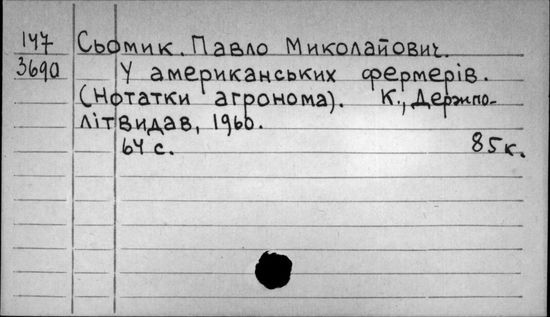 147 Сьомик. Павло Миколайович.
3690 У американських фермерів.
(Нотатки агронома). К., Держпо-
літвидав, 1960.
64 с. 85к.